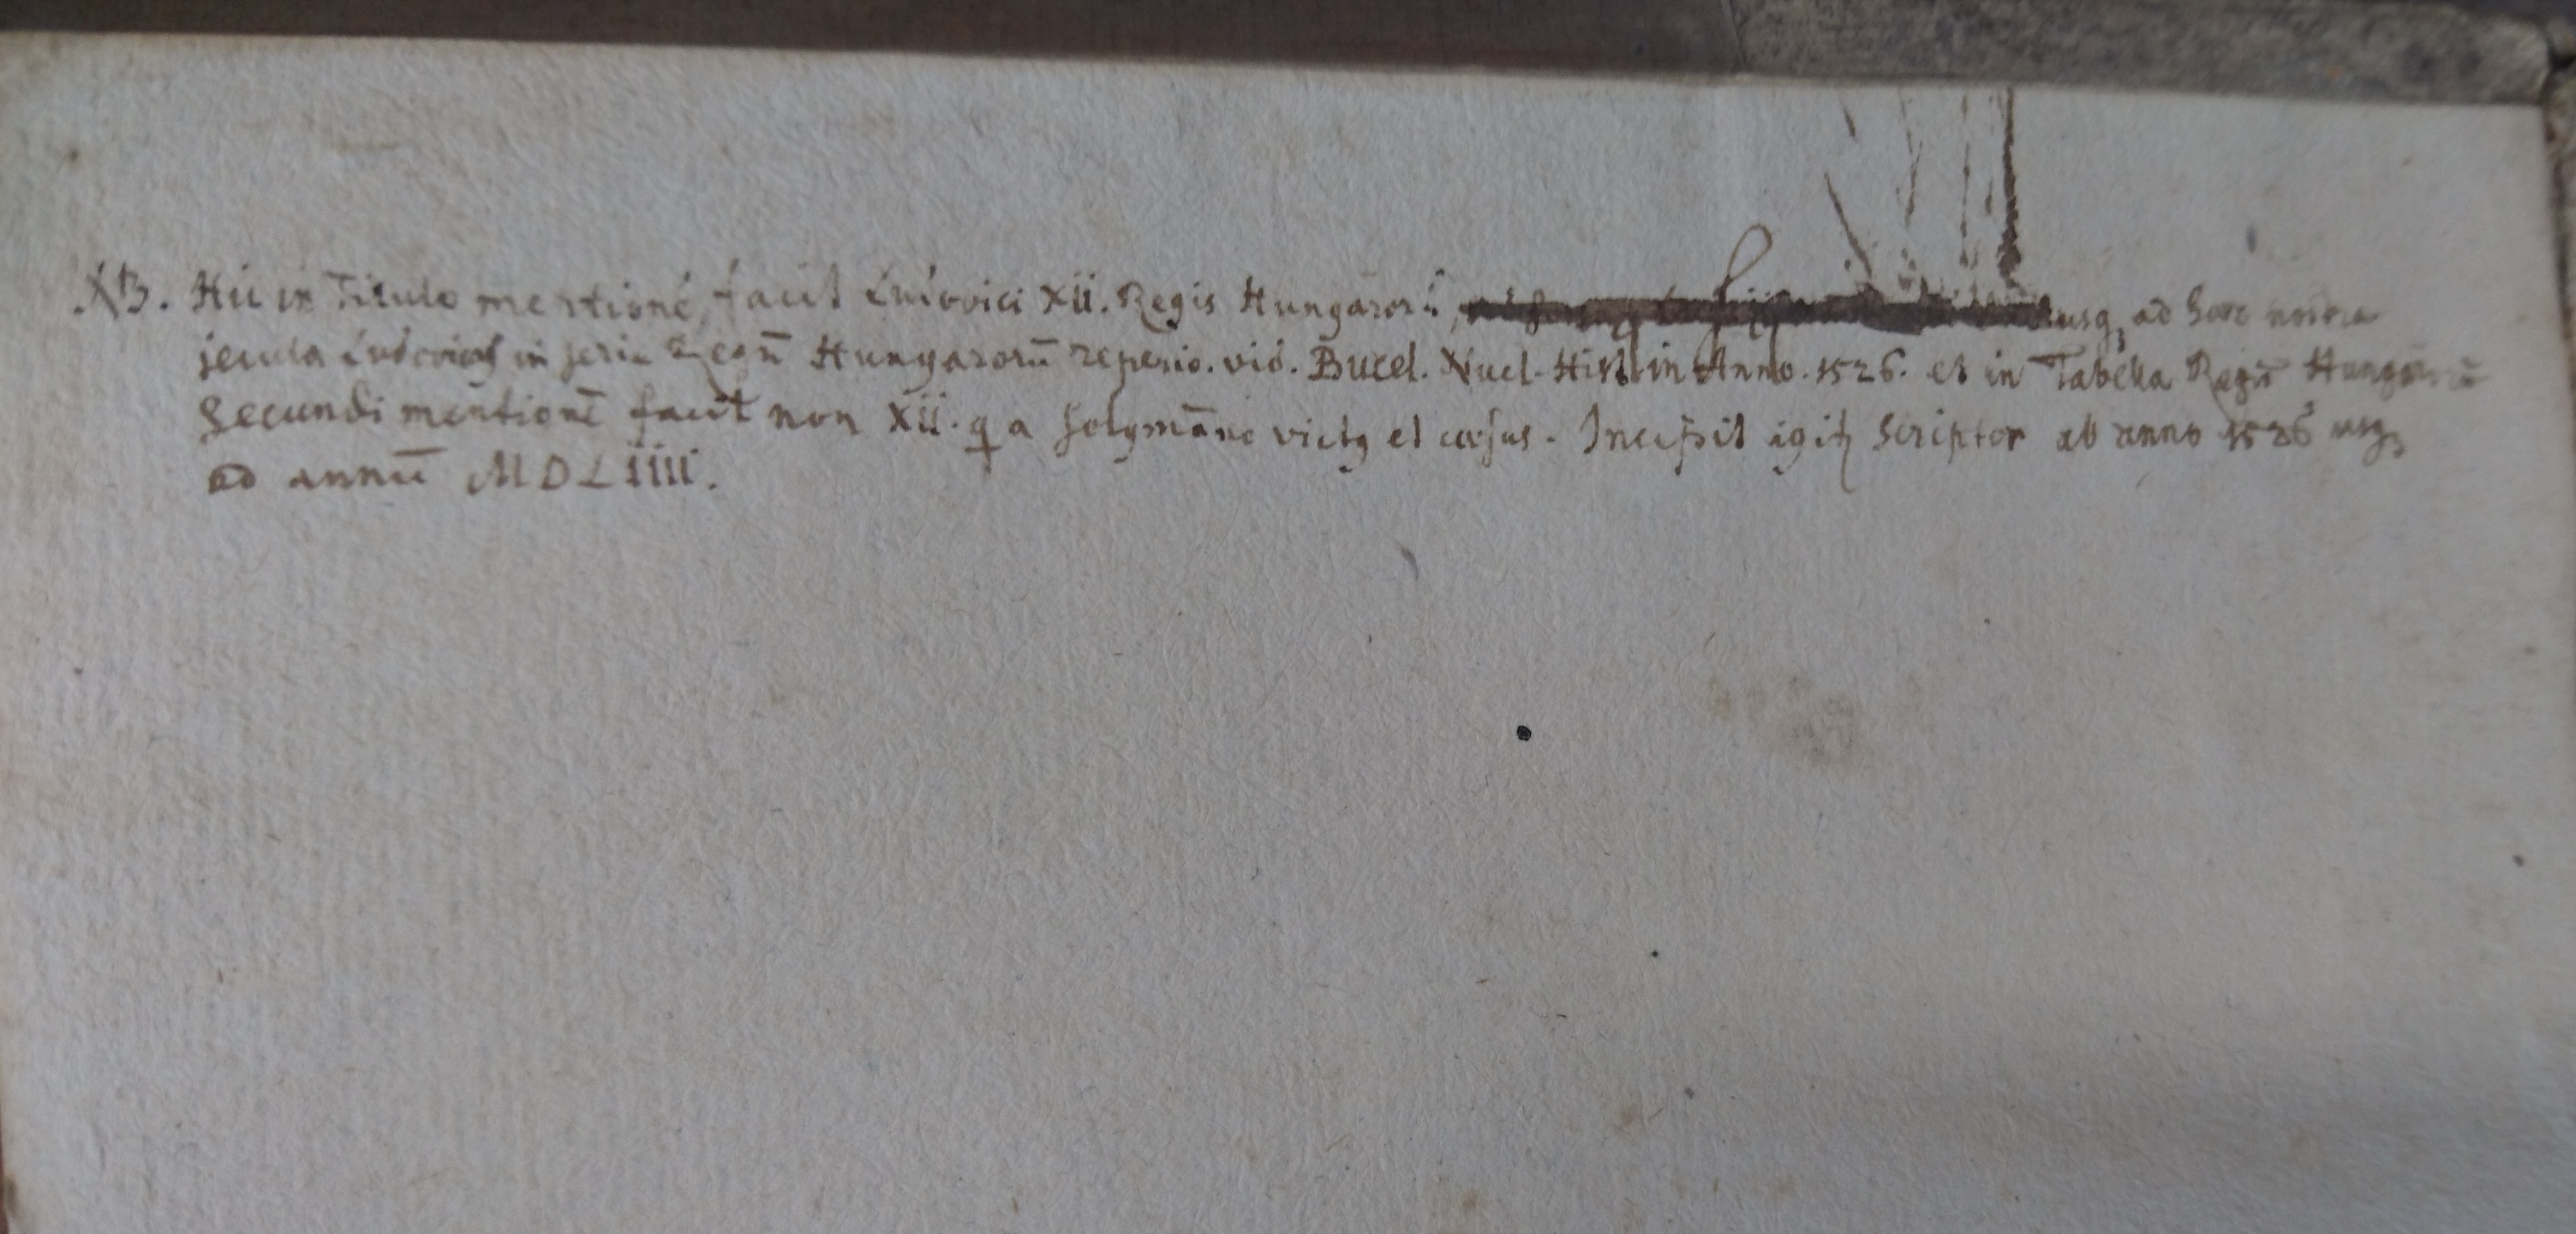 NB. Hic in Titulo mentionē facit Ludovici XII. Regis Hungarorū, usq, ad haec nostra
secula Ludovicos in serie Regū Hungarorū reperio. vid. Bucel. Nucl. Hist. in Anno. 1526. et in Tabella Regū Hungarorū
Secundi mentionē facit non XII. q a Solymāno victq et caesus. Incipit igitꝛ Scriptor ab anno 1526 usq,
ad annū MDLIIII.